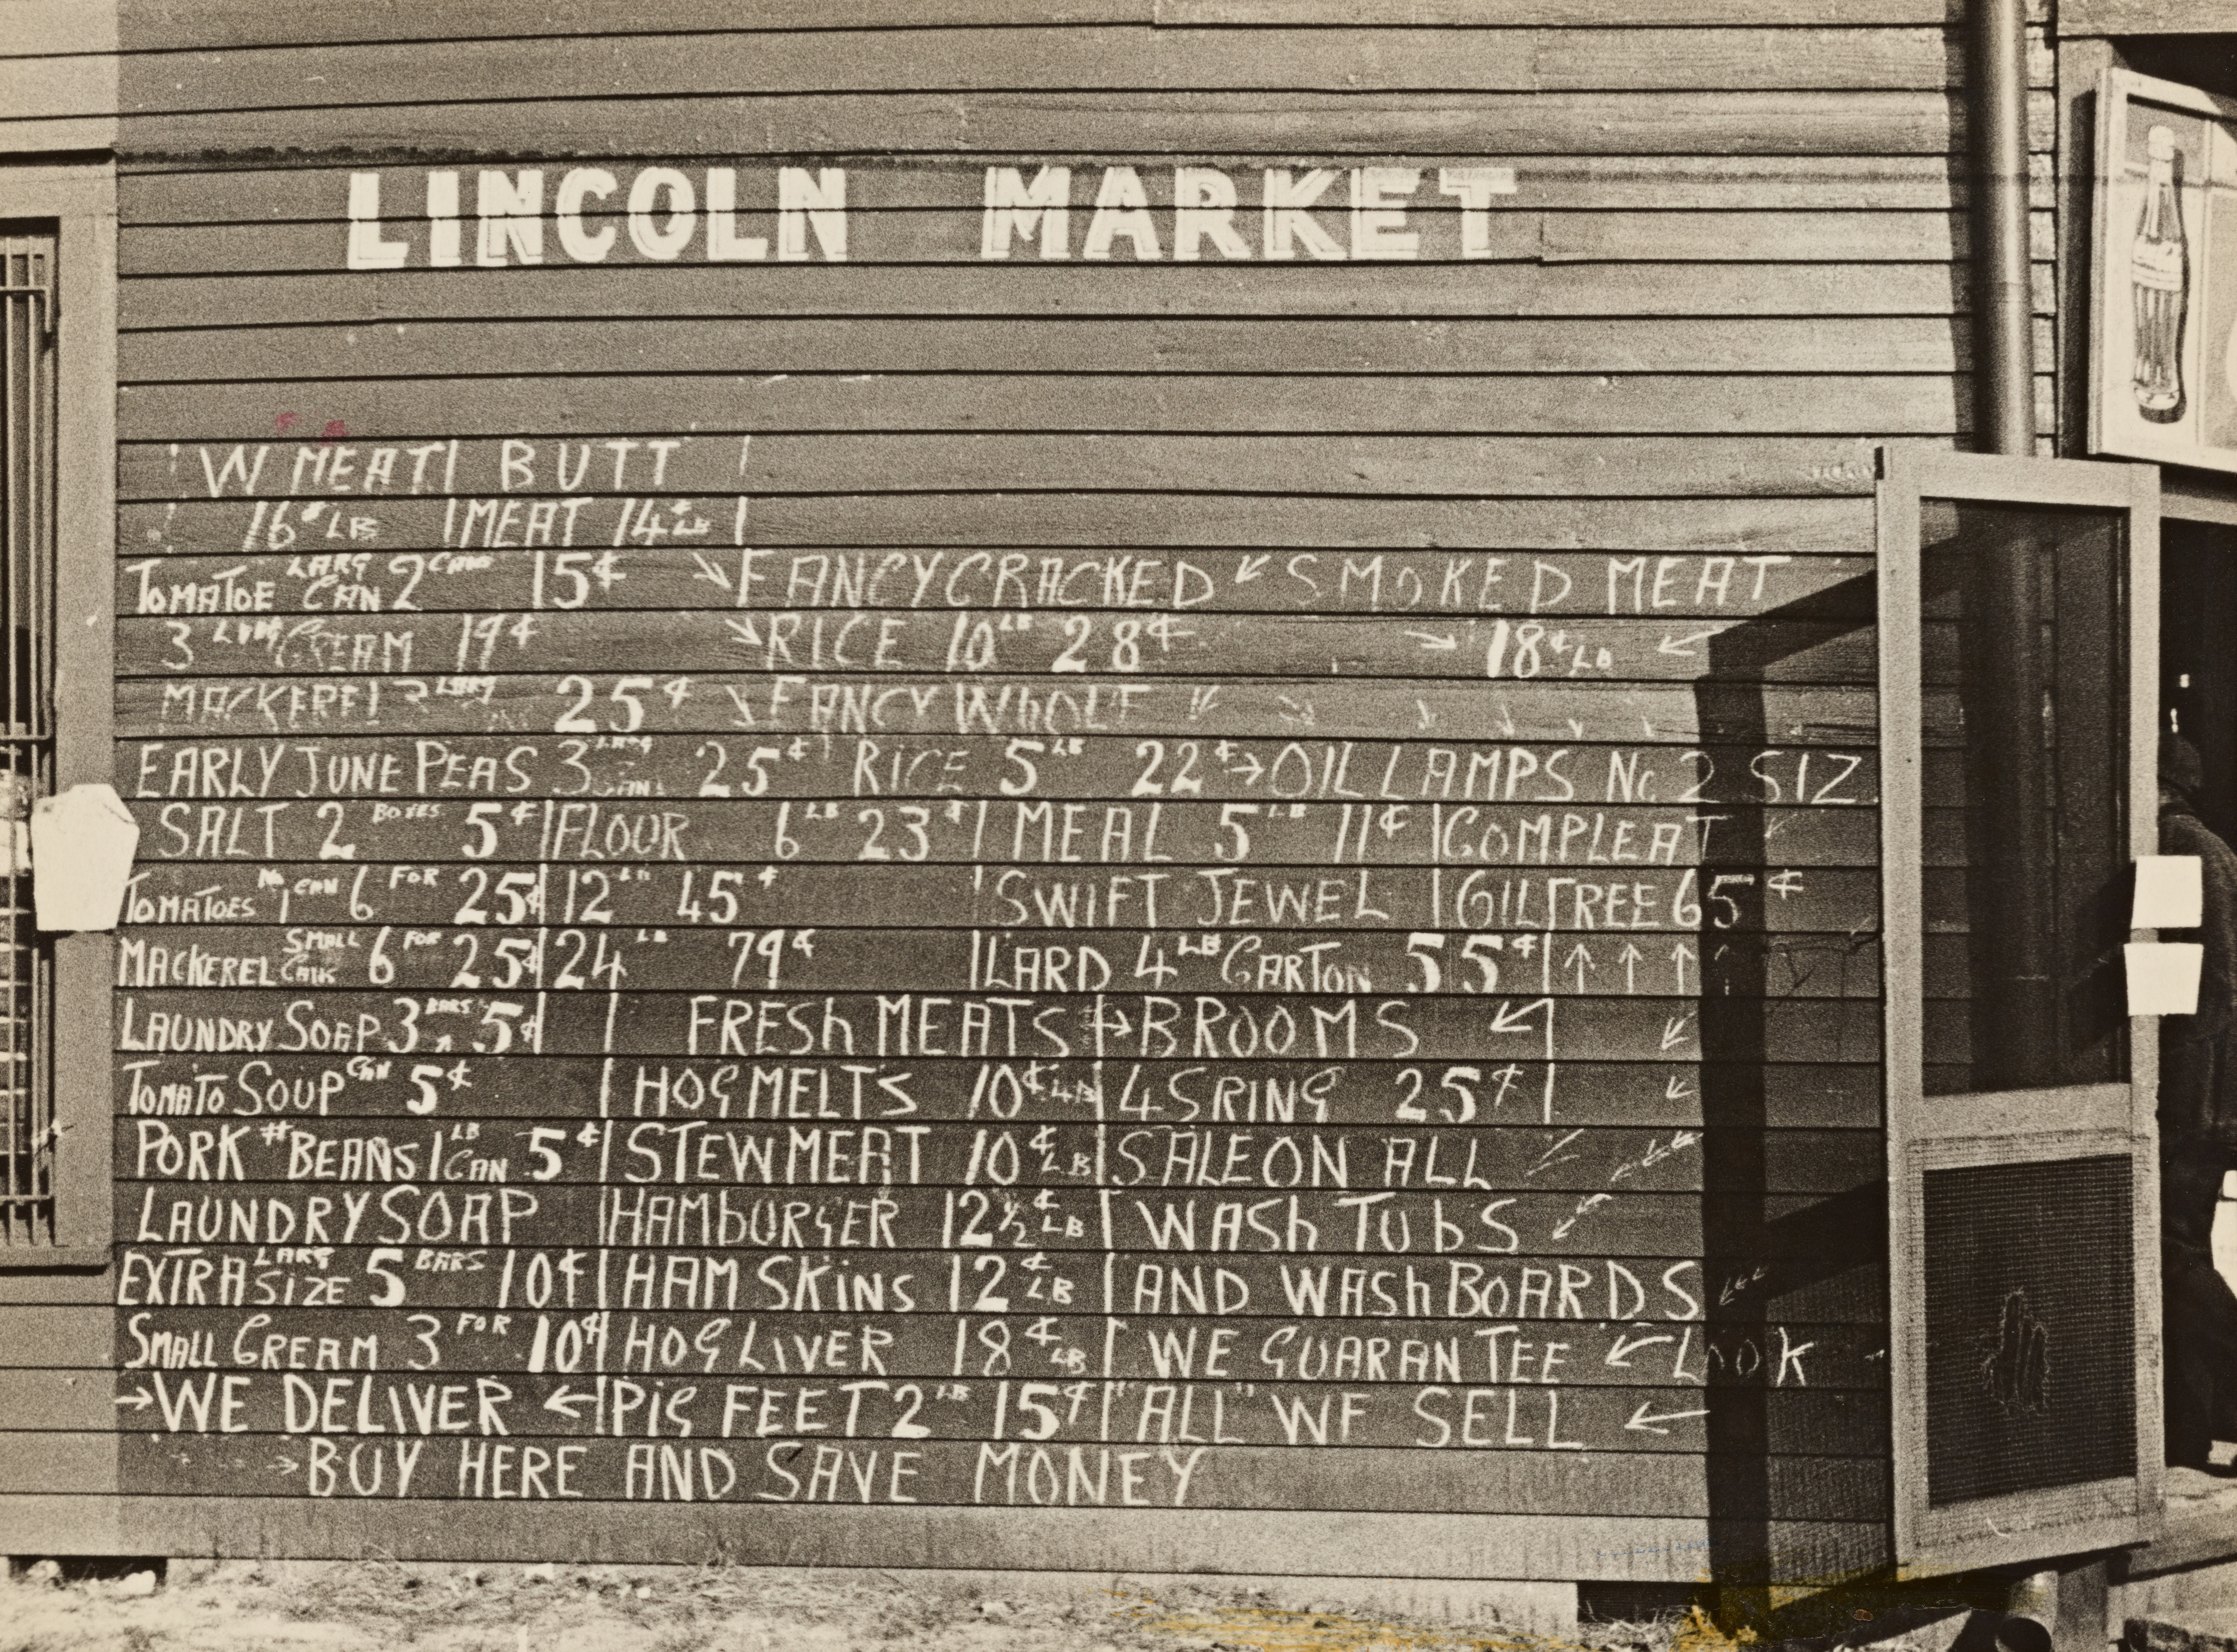 LINCOLN MARKET
W MEAT BUTT
16¢ LB MEAT 14¢ LB
TOMATOE LARG CAN 2 CANS 15¢ FANCY CRACKED SMOKED MEAT
3 LARG CREAM 19¢ RICE 10 LB 28¢ 18¢ LB
MACKEREL 3 LARG 25¢ FANCY WhOLE
EARLY JUNE PEAS 3 LARG CANS 25¢ RICE 5 LB 22¢ OIL LAMPS No 2 SIZ
SALT 2 BOXES 5¢ FLOUR 6 LB 23¢ MEAL 5 LB 11¢ COMPLEAT
TOMATOES No 1 CAN 6 FOR 25¢ 12 LB 45¢ SWIFT JEWEL OIL FREE 65¢
MACKEREL SMALL CANS 6 FOR 25¢ 24 LB 79¢ LARD 4 LB CARTON 55¢
LAUNDRY SOAP 3 BARS 5¢ FRESh MEATS BROOMS
TOMATO SOUP CAN 5¢ HOG MELTS 10¢ LB 4 SRING 25¢
PORK # BEANS 1 LB CAN 5¢ STEW MEAT 10¢ LB SALE ON ALL
LAUNDRY SOAP HAMbURGER 12½¢ LB WASh TUbS
EXTRA LARG SIZE 5 BARS 10¢ HAM SKINS 12¢ LB AND WASh BOARDS
SMALL CREAM 3 FOR 10¢ HOG LIVER 18¢ LB WE GUARANTEE LOOK
WE DELIVER PIG FEET 2 LB 15¢ "ALL" WE SELL
BUY HERE AND SAVE MONEY